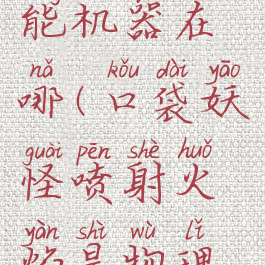 能机器在
nǎ kǒu dài yāo
哪(口袋妖
guài pēn shè huǒ
怪喷射火
yàn shì wù lǐ
焰是物理